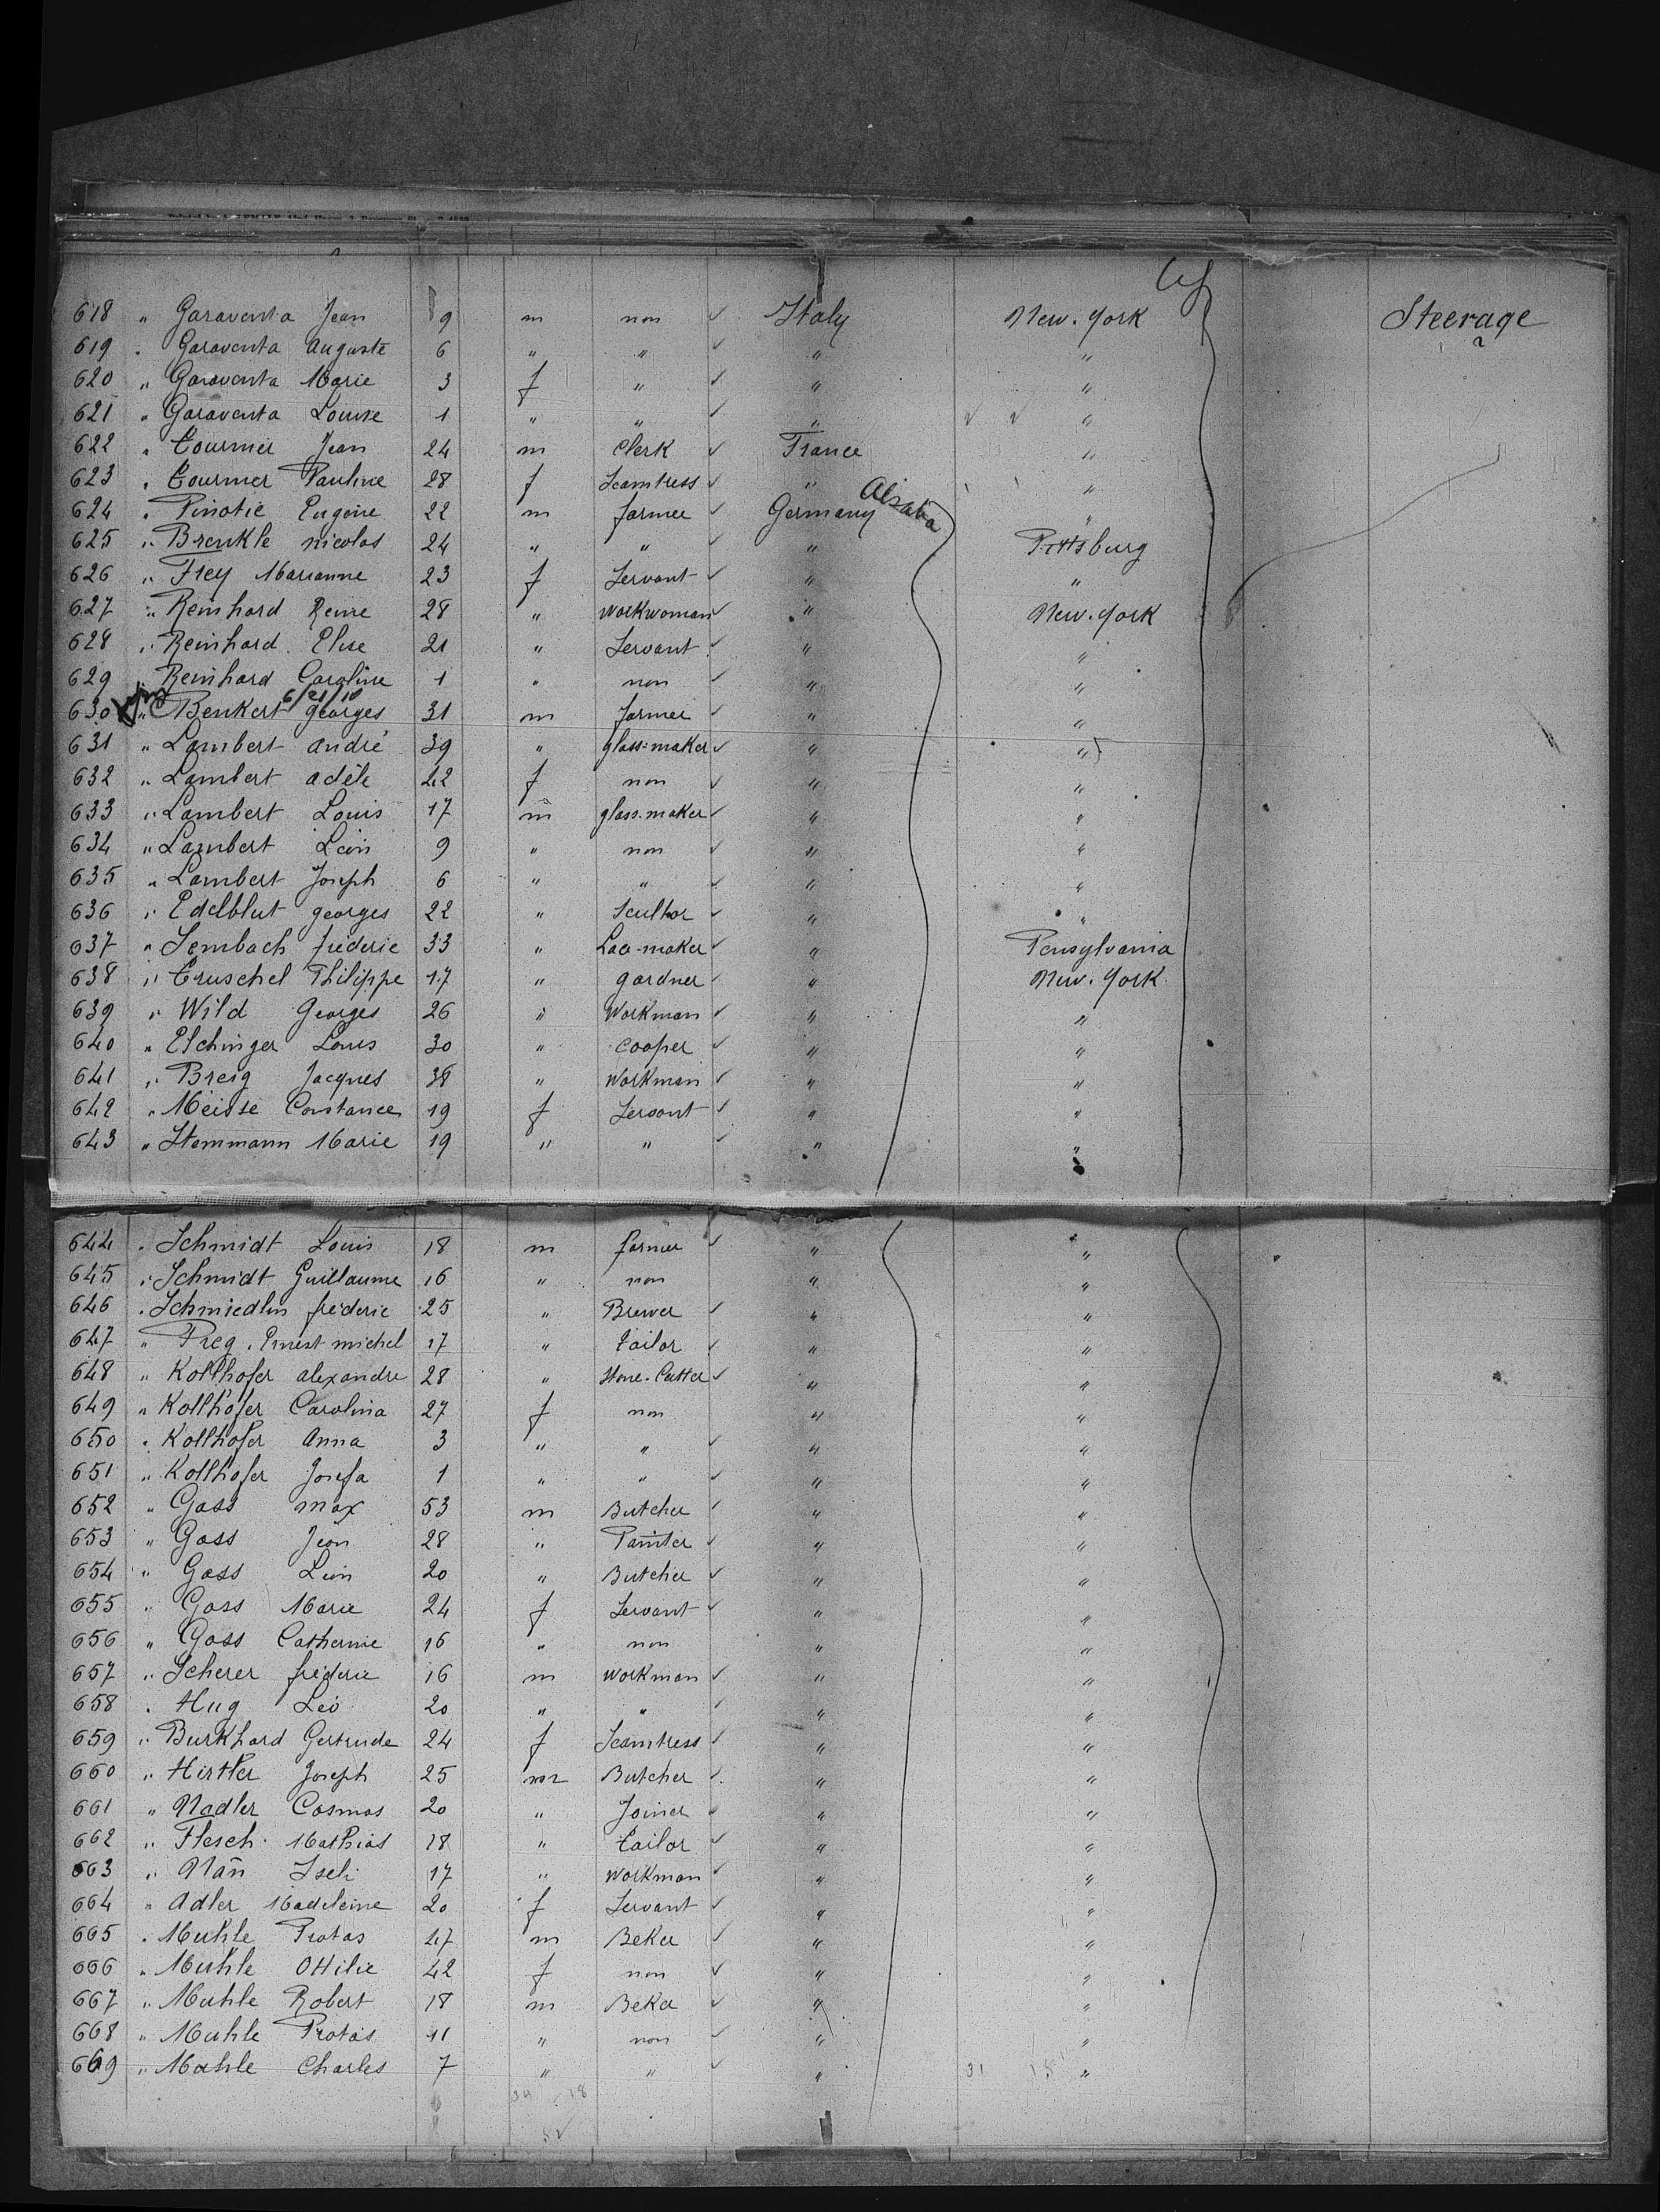 618 " Garaventa Jean 9 m non ✓ Italy New. York Steerage
619 " Garaventa Auguste 6 " " ✓ " "
620 " Garaventa Marie 3 f " ✓ " "
621 " Garaventa Louise 1 " " ✓ " "
622 " Tournier Jean 24 m Clerk ✓ France "
623 " Tournier Pauline 28 f Seamtress ✓ " "
624 " Pinotie Eugene 22 m farmer ✓ Germany Alsatia "
625 " Brenkle nicolas 24 " " ✓ " Pittsburg
626 " Frey Marianne 23 f Servant ✓ " "
627 " Reinhard Reine 28 " Workwoman ✓ " New. York
628 " Reinhard Elise 21 " Servant " "
629 " Reinhard Caroline 1 " non ✓ " "
6/21/10
630 " Benkert georges 31 m farmer ✓ " "
631 " Lambert andré 39 " glass-maker ✓ " "
632 " Lambert adèle 42 f non ✓ " "
633 " Lambert Louis 17 m glass-maker ✓ " "
634 " Lambert Léon 9 " non ✓ " "
635 " Lambert Joseph 6 " " ✓ " "
636 " Edelblut georges 22 " Scultor ✓ " "
637 " Sembach fréderic 33 " Lace-maker ✓ " Pensylvania
638 " Truschel Philippe 17 " gardner " New. York
639 " Wild Georges 26 " Workman ✓ " "
640 " Elchinger Louis 30 " Cooper ✓ " "
641 " Breig Jacques 38 " Workman ✓ " "
642 " Meisse Constance 19 f Servant ✓ " "
643 " Stemmann Marie 19 " " ✓ " "
644 " Schmidt Louis 18 m farmer ✓ " "
645 " Schmidt Guillaume 16 " non " "
646 " Schmiedlin fréderic 25 " Brewer ✓ " "
647 " Freg. Ernest michel 17 " tailor ✓ " "
648 " Kollhofer alexandre 28 " Stone-Cutter ✓ " "
649 " Kollhöfer Carolina 27 f non " "
650 " Kollhofer Anna 3 " " ✓ " "
651 " Kollhofer Josefa 1 " " ✓ " "
652 " Gass max 53 m Butcher ✓ " "
653 " Gass Jean 28 " Painter ✓ " "
654 " Gass Léon 20 " Butcher ✓ " "
655 " Gass Marie 24 f Servant ✓ " "
656 " Gass Catherine 16 " non " "
657 " Scherer fréderic 16 m Workman ✓ " "
658 " Hug Léo 20 " " ✓ " "
659 " Burkhard Gertrude 24 f Seamtress ✓ " "
660 " Hirtler Joseph 25 m Butcher ✓ " "
661 " Nadler Cosmas 20 " Joiner ✓ " "
662 " Flesch Mathias 18 " tailor ✓ " "
663 " Nañ Iseli 17 " Workman ✓ " "
664 " Adler Madeleine 20 f Servant ✓ " "
665 " Muhle Protas 47 m Beker ✓ " "
666 " Muhle Ottilie 42 f non ✓ " "
667 " Muhle Robert 18 m Beker ✓ " "
668 " Muhle Protas 11 " non ✓ " "
669 " Muhle Charles 7 " " ✓ " 31 "